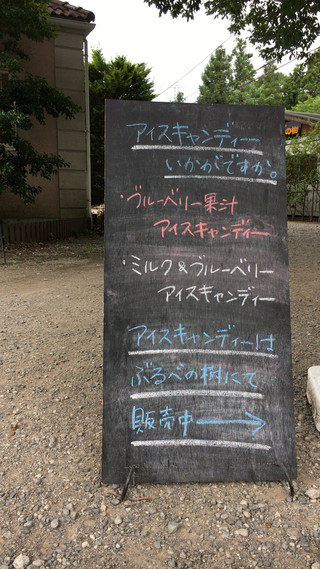 アイスキャンディー
いかがですか。
・ブルーベリー果汁
アイスキャンディー
・ミルク&ブルーベリー
アイスキャンディー
アイスキャンディーは
ぶるべの樹にて
販売中→